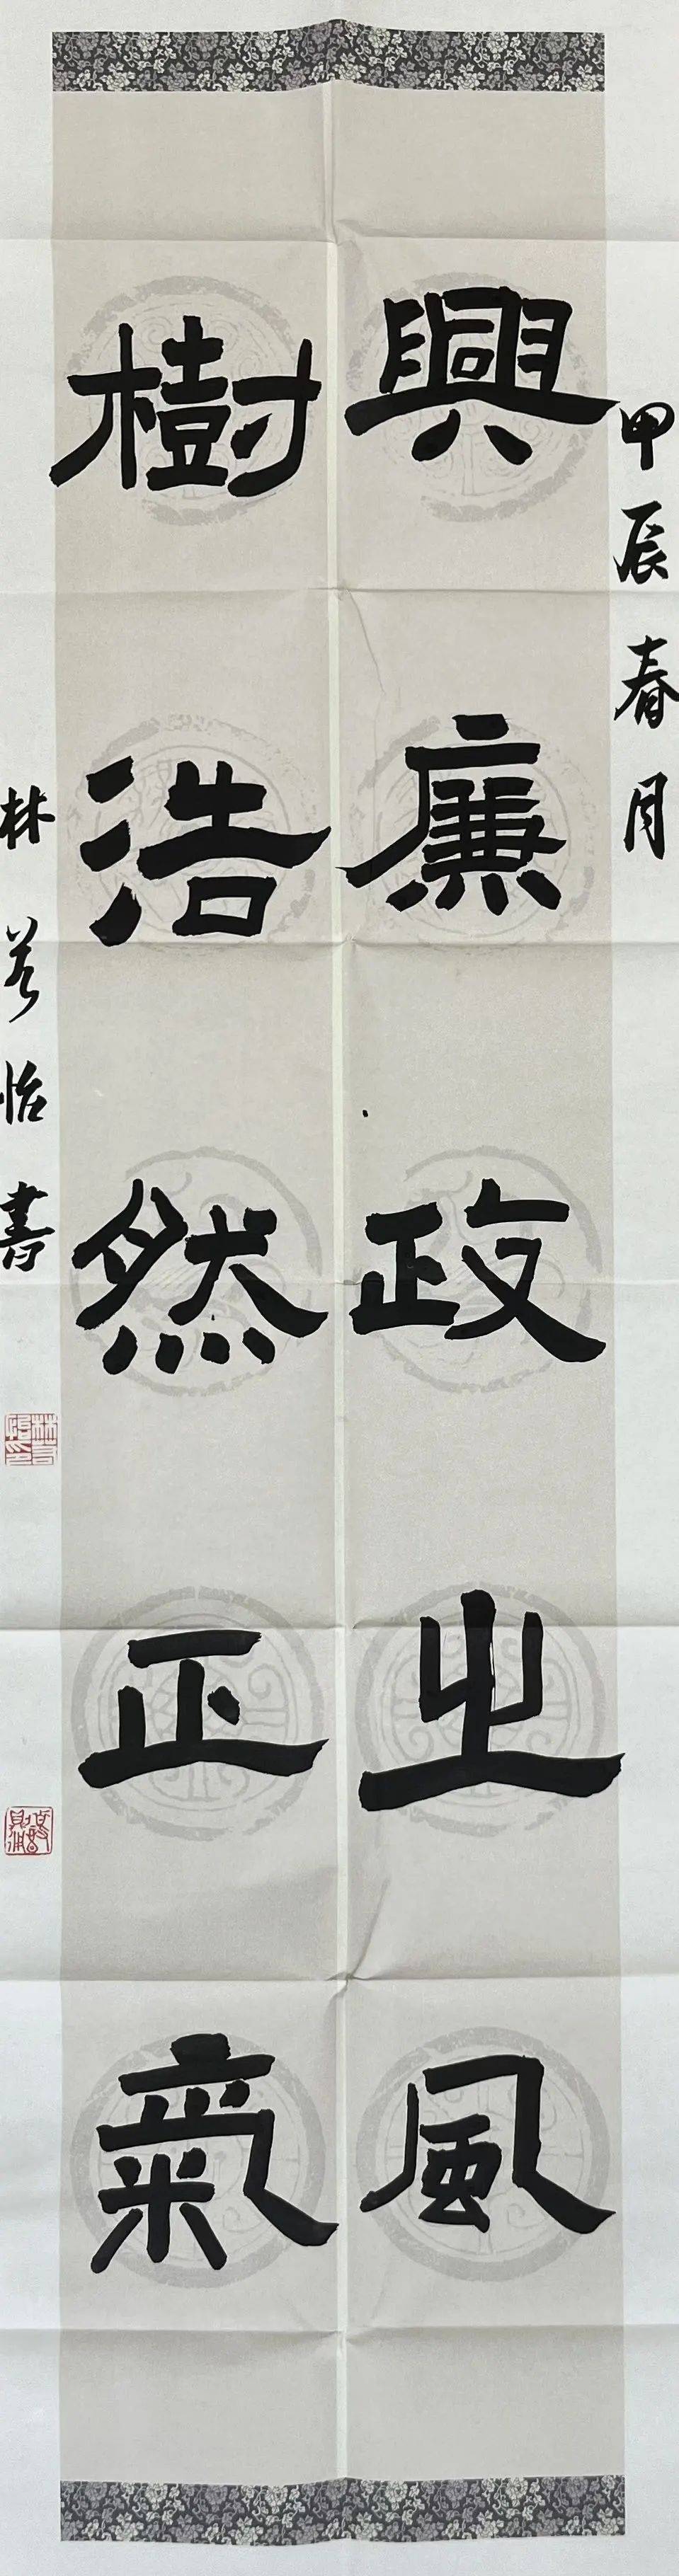 甲辰春月
興廉政之風
樹浩然正氣
林若怡書